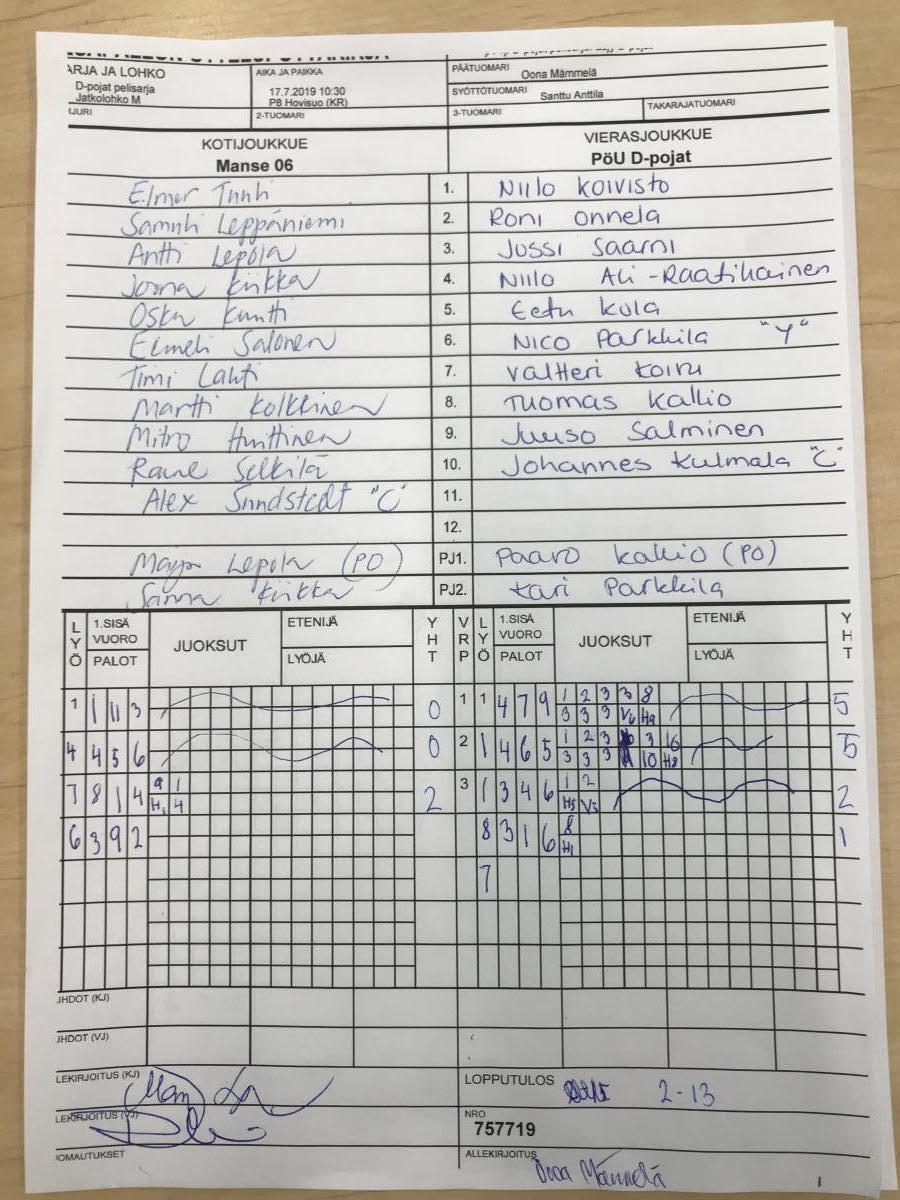 ARJA JA LOHKO
D-pojat pelisarja
Jatkolohko M
AIKA JA PAIKKA
17.7.2019 10:30
P8 Hovisuo (KR)
PÄÄTUOMARI Oona Mämmelä
SYÖTTÖTUOMARI Santtu Anttila
2-TUOMARI
3-TUOMARI
TAKARAJATUOMARI
KOTIJOUKKUE
Manse 06
VIERASJOUKKUE
PöU D-pojat
Elmer 1. Niilo Koivisto
Leppäniemi 2. Roni Onnela
Antti Lepola 3. Jussi Saarni
Joona Kiikka 4. Niilo Ali-Raatikainen
5. Eetu Kula
Elmeli Salonen 6. Nico Parkkila "Y"
Timi Lahti 7. Valtteri Koivu
Martti Kolkkinen 8. Tuomas Kallio
Mitro Huttinen 9. Juuso Salminen
Selkilä 10. Johannes Kulmala "C"
Alex Sundstedt "C" 11.
12.
Lepola (PO) PJ1. Paavo Kallio (PO)
Sanna Kiikka PJ2. Kari Parkkila
LYÖ 1.SISÄ VUORO PALOT JUOKSUT ETENIJÄ LYÖJÄ YHT VRP LYÖ 1.SISÄ VUORO PALOT JUOKSUT ETENIJÄ LYÖJÄ YHT
1 1 11 3 0 1 1 4 7 9 1 2 3 3 8 5
3 3 3 V6 H9
4 4 5 6 0 2 1 4 6 5 1 2 3 3 16 5
3 3 3 10 H8
7 8 1 4 9 1 2 3 1 3 4 6 1 2 2
H1 4 H5 V3
6 3 9 2 8 3 1 6 8 1
H1
7
JHDOT (KJ)
JHDOT (VJ)
LEKIRJOITUS (KJ)
LOPPUTULOS 2-13
LEKIRJOITUS (VJ)
NRO
757719
OMAUTUKSET
ALLEKIRJOITUS Oona Mämmelä